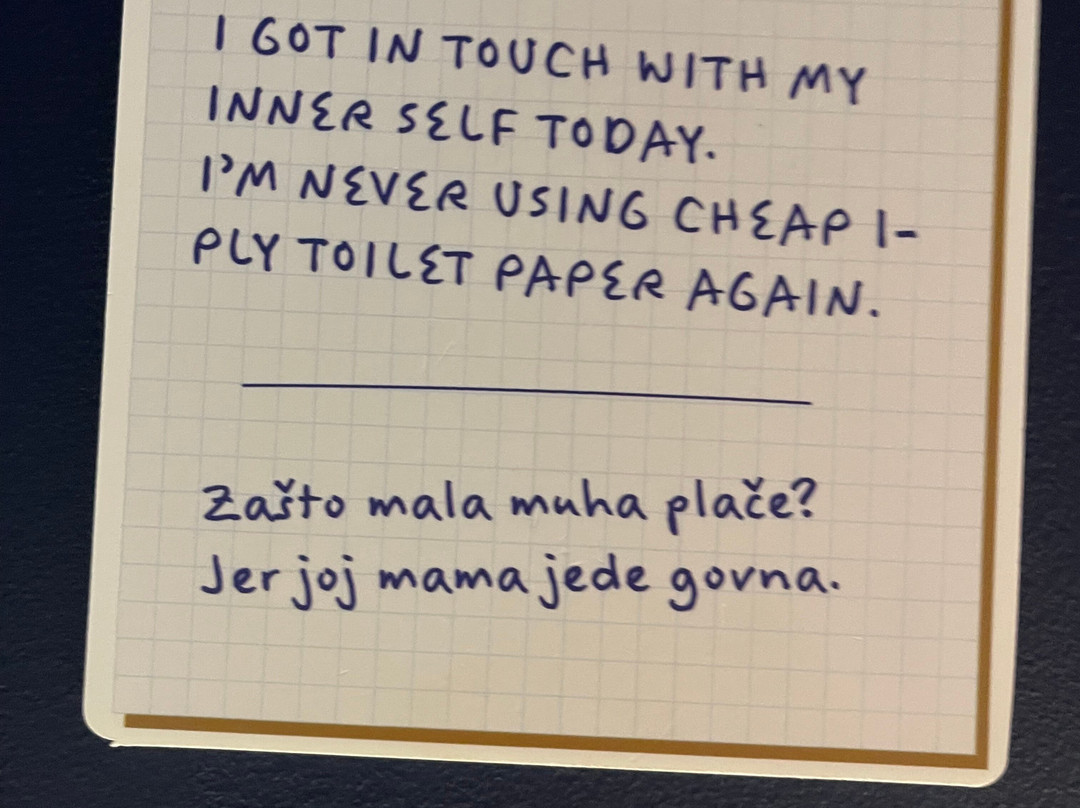 I GOT IN TOUCH WITH MY
INNER SELF TODAY.
I'M NEVER USING CHEAP 1-
PLY TOILET PAPER AGAIN.
Zašto mala muha plače?
Jer joj mama jede govna.